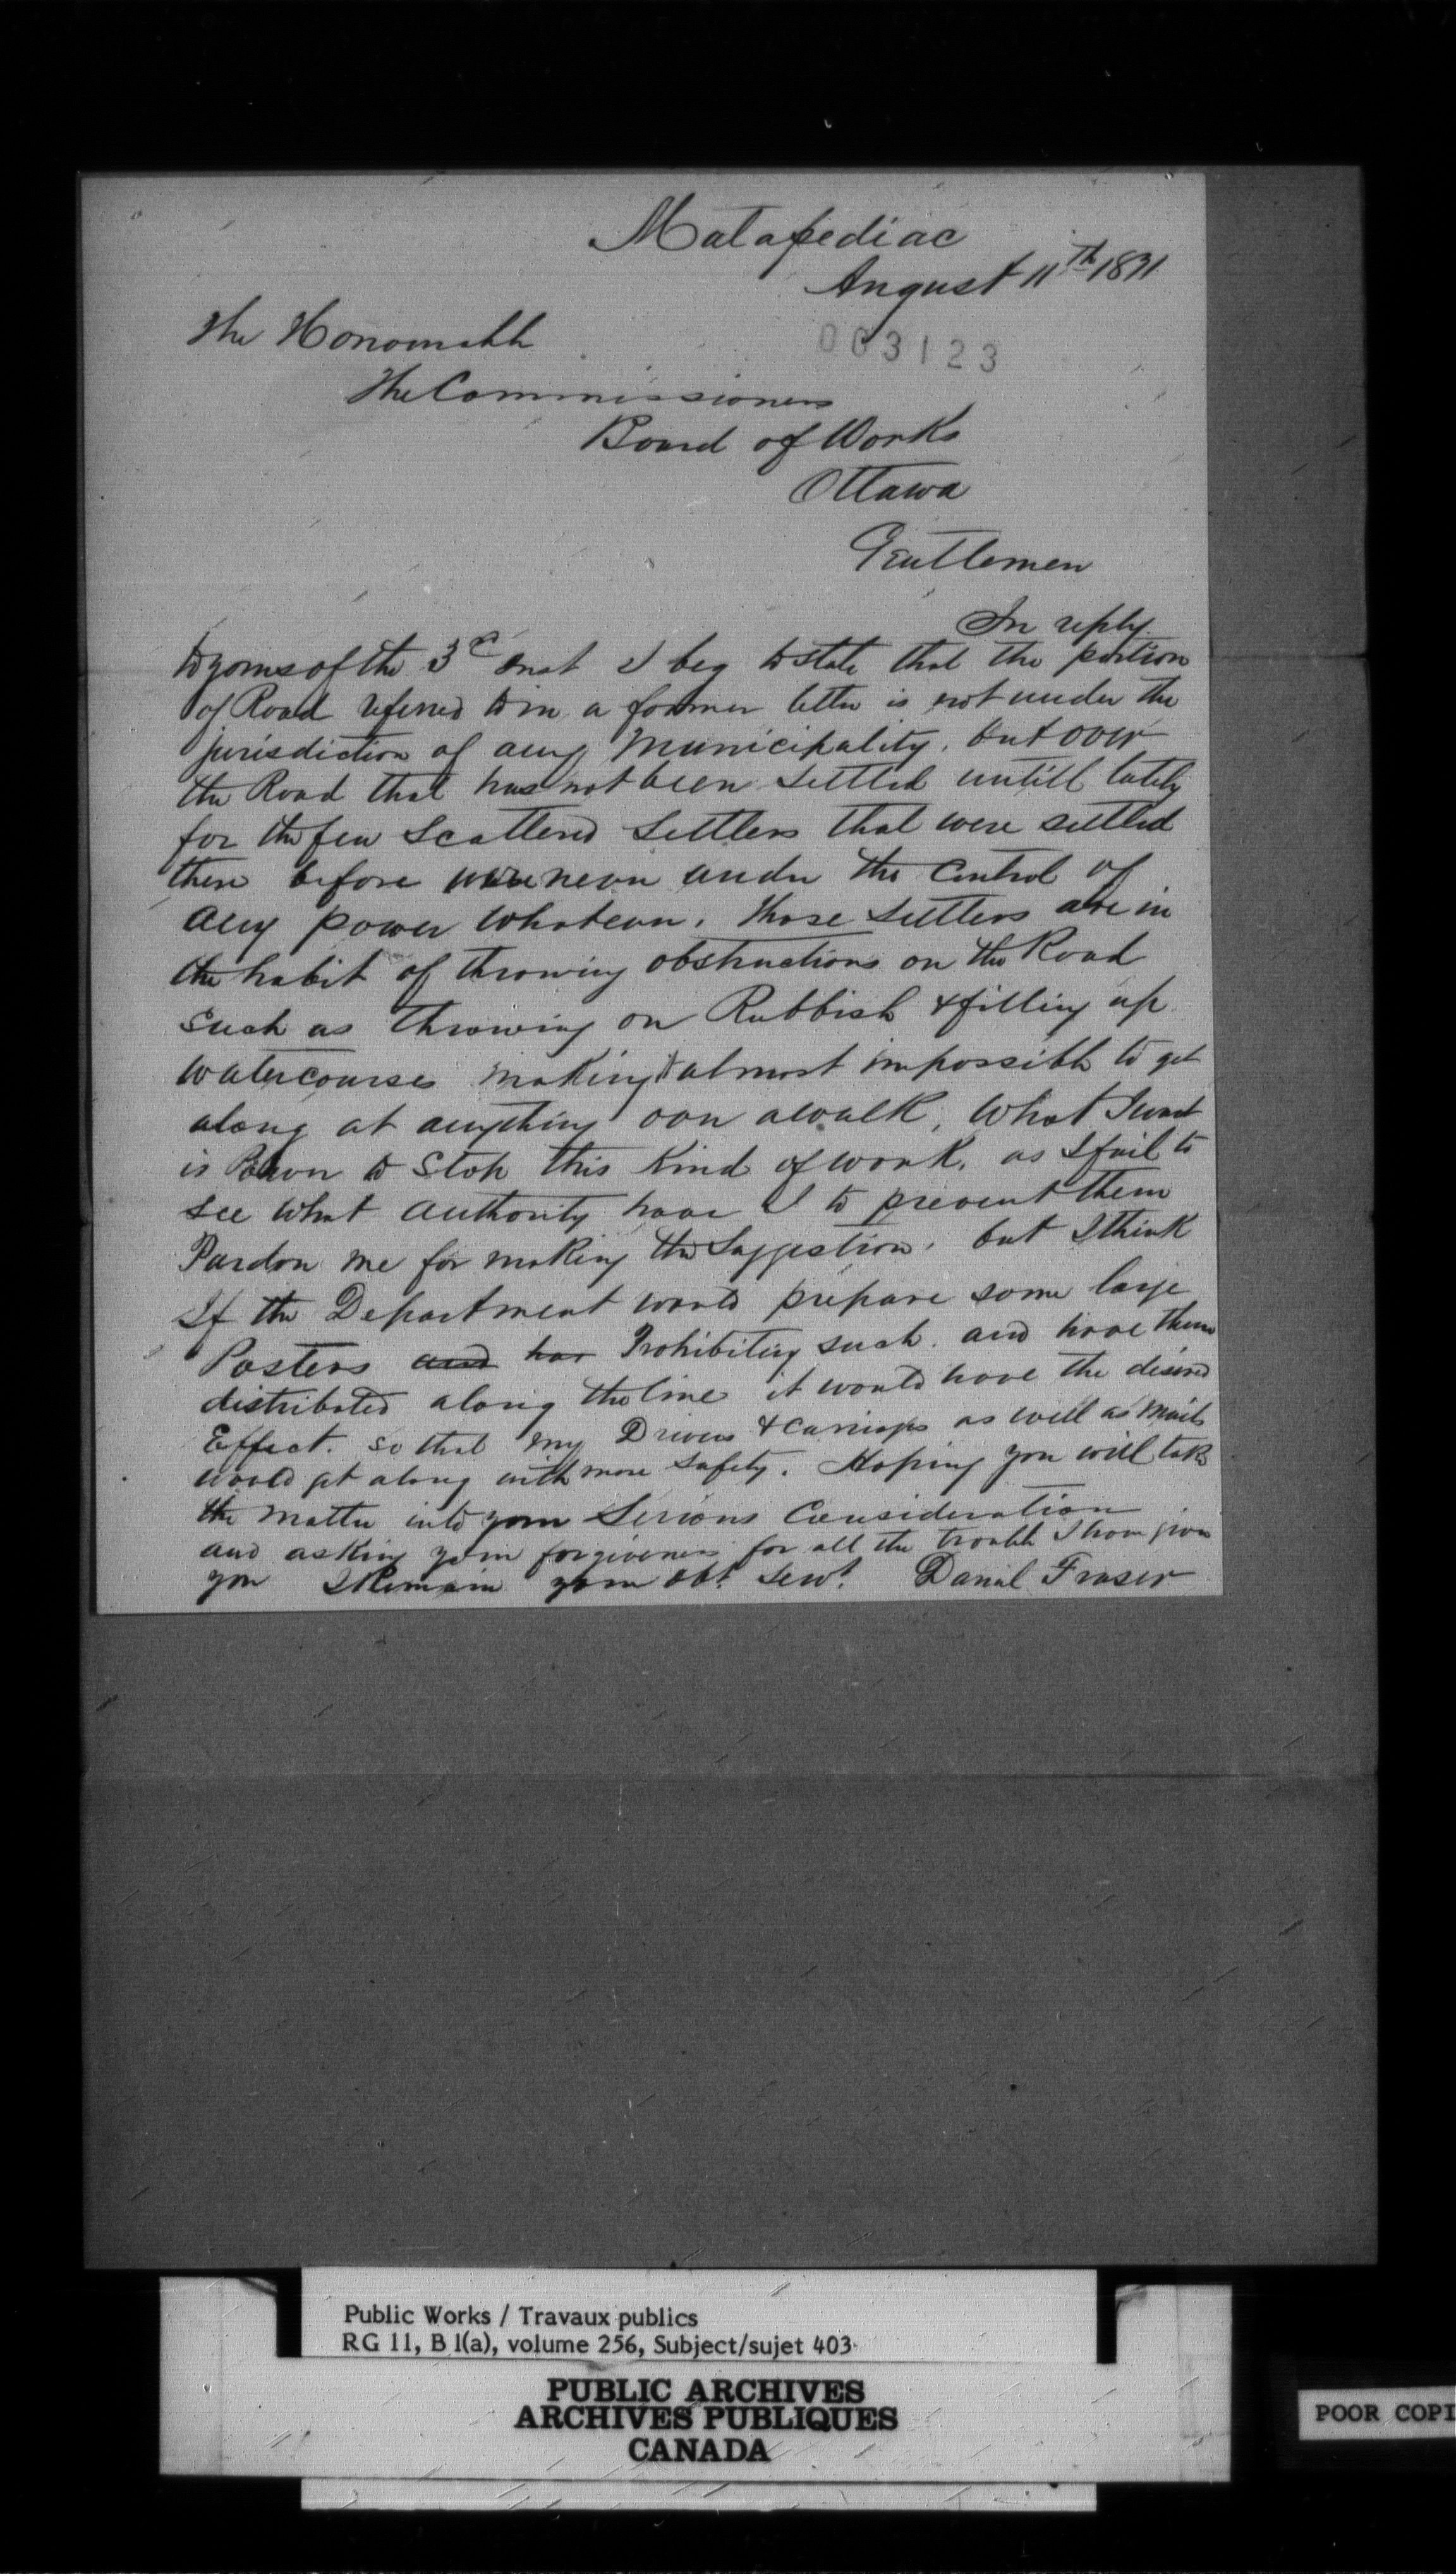 Matapediac
August 11th 1871
003123
The Honourable
The Commissioners
Board of Works
Ottawa
Gentlemen
In reply
to yours of the 3d inst I beg to state that the portion
of Road referred to in a former letter is not under the
jurisdiction of any Municipality. but over
the Road that has not been settled untill lately
for the few Scattered Settlers that were settled
there before were never under the Control of
any power whatever. those settlers are in
the habit of throwing obstructions on the Road
such as throwing on Rubbish & filling up
watercourses making it almost impossible to get
along at anything over a walk, What I want
is Power to Stop this Kind of work. as I fail to
see what authority have I to prevent them
Pardon me for making the Suggestion. but I think
If the Department would prepare some large
Posters and hav Prohibiting such. and have them
distributed along the line it would have the desired
Effect. so that my Drivers & Carriages as well as Mails
would get along with more safety. Hoping you will take
the matter into your Serious Consideration
and asking your forgiveness for all the trouble I have given
you I Remain your obt. servt. Danial Fraser
Public Works / Travaux publics
RG 11, B 1(a), volume 256, Subject/sujet 403
PUBLIC ARCHIVES
ARCHIVES PUBLIQUES
CANADA
POOR COPI